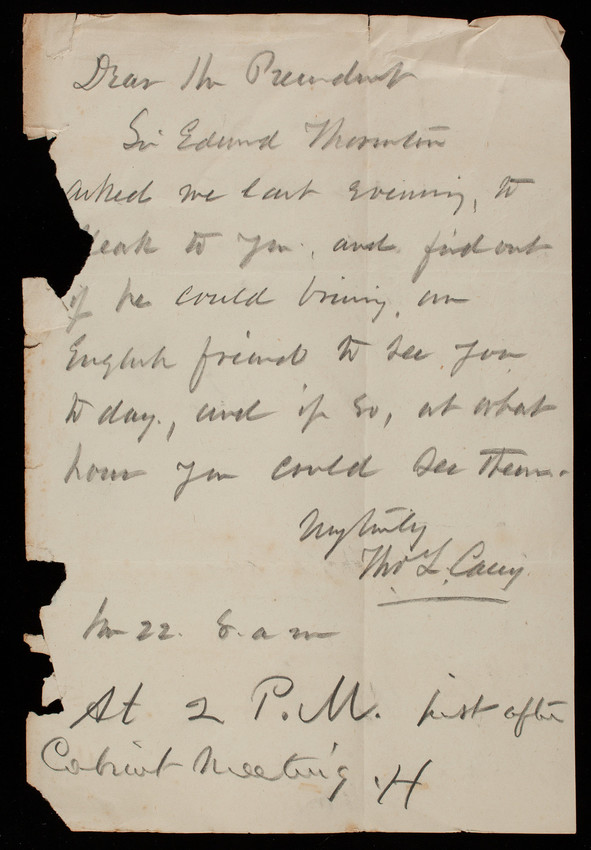 Dear Mr President
Sir Edward Thornton
asked me last evening, to
speak to you, and find out
if he could bring, an
English friend to see you
to day, and if so, at what
hour you could see them.
Very truly
Thos L. Casey
22. 8. a m
At 2 P.M. just after
Cabinet Meeting. H